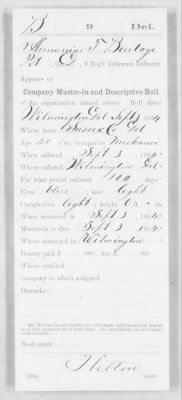 B 9 Del.
Burbage
Pvt., Co. E, 9 Reg't Delaware Infantry.
Appears on
Company Muster-in and Descriptive Roll
of the organization named above. Roll dated
Wilmington Del Sept 3, 1864.
Where born Sussex Co Del
Age 40 y'rs; occupation Mechanic
When enlisted Sept 3, 1864.
Where enlisted Wilmington Del.
For what period enlisted 100 days.
Eyes blue; hair light
Complexion light; height 6 ft. in.
When mustered in Sept 3, 1864.
Muster-in to date Sept 3, 1864.
Where mustered in Wilmington
Bounty paid $ 100; due $ 100
Where credited
Company to which assigned
Remarks:
Book mark: